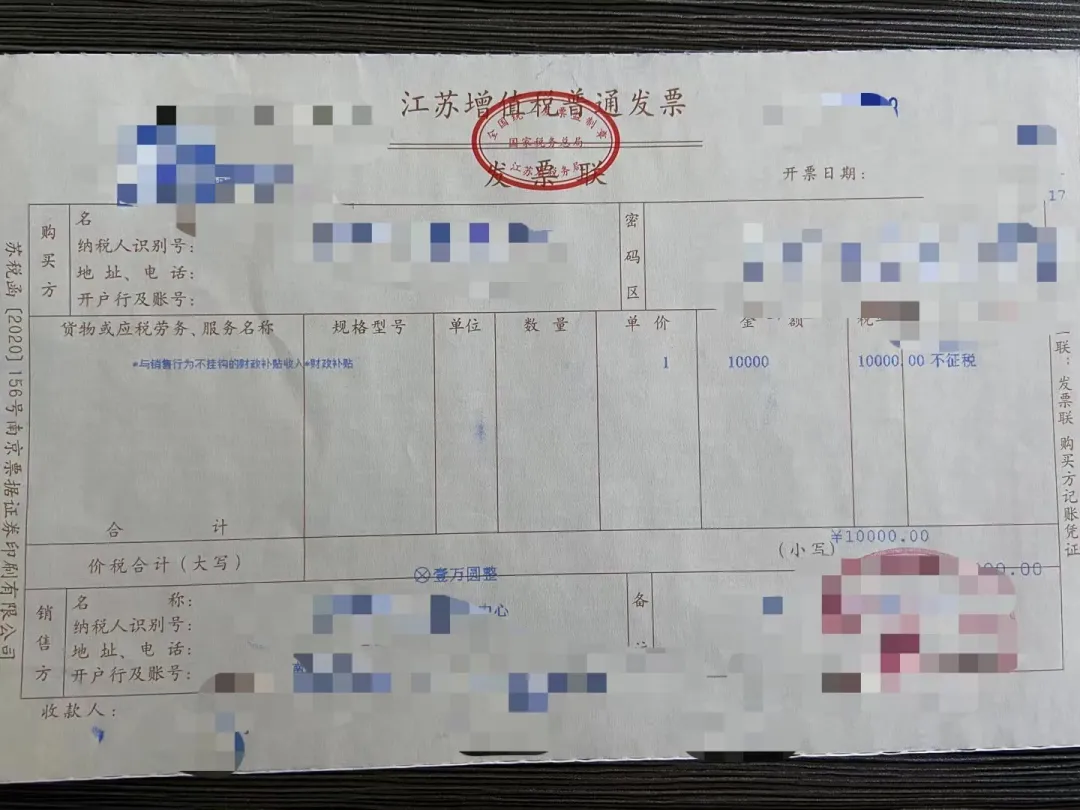 江苏增值税普通发票
国家税务总局
江苏省税务局
发票联
开票日期:
17
购买方
名
纳税人识别号:
地址、电话:
开户行及账号:
密码区
货物或应税劳务、服务名称 规格型号 单位 数量 单价 金额 税
*与销售行为不挂钩的财政补贴收入*财政补贴 1 10000 10000.00 不征税
合计
¥10000.00
价税合计(大写) ⊗壹万圆整 (小写) 00.00
销售方
名称:
纳税人识别号:
地址、电话:
开户行及账号:
中心
备
收款人:
苏税函[2020]156号南京票据证券印刷有限公司
联:发票联 购买方记账凭证